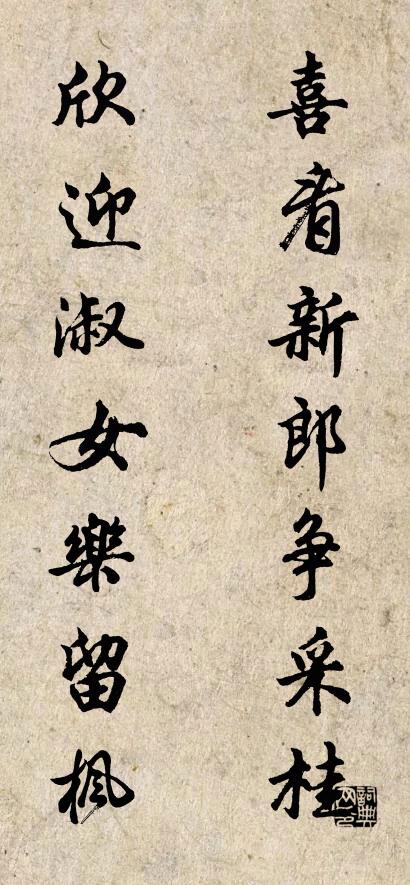 喜看新郎争采桂
欣迎淑女樂留楓